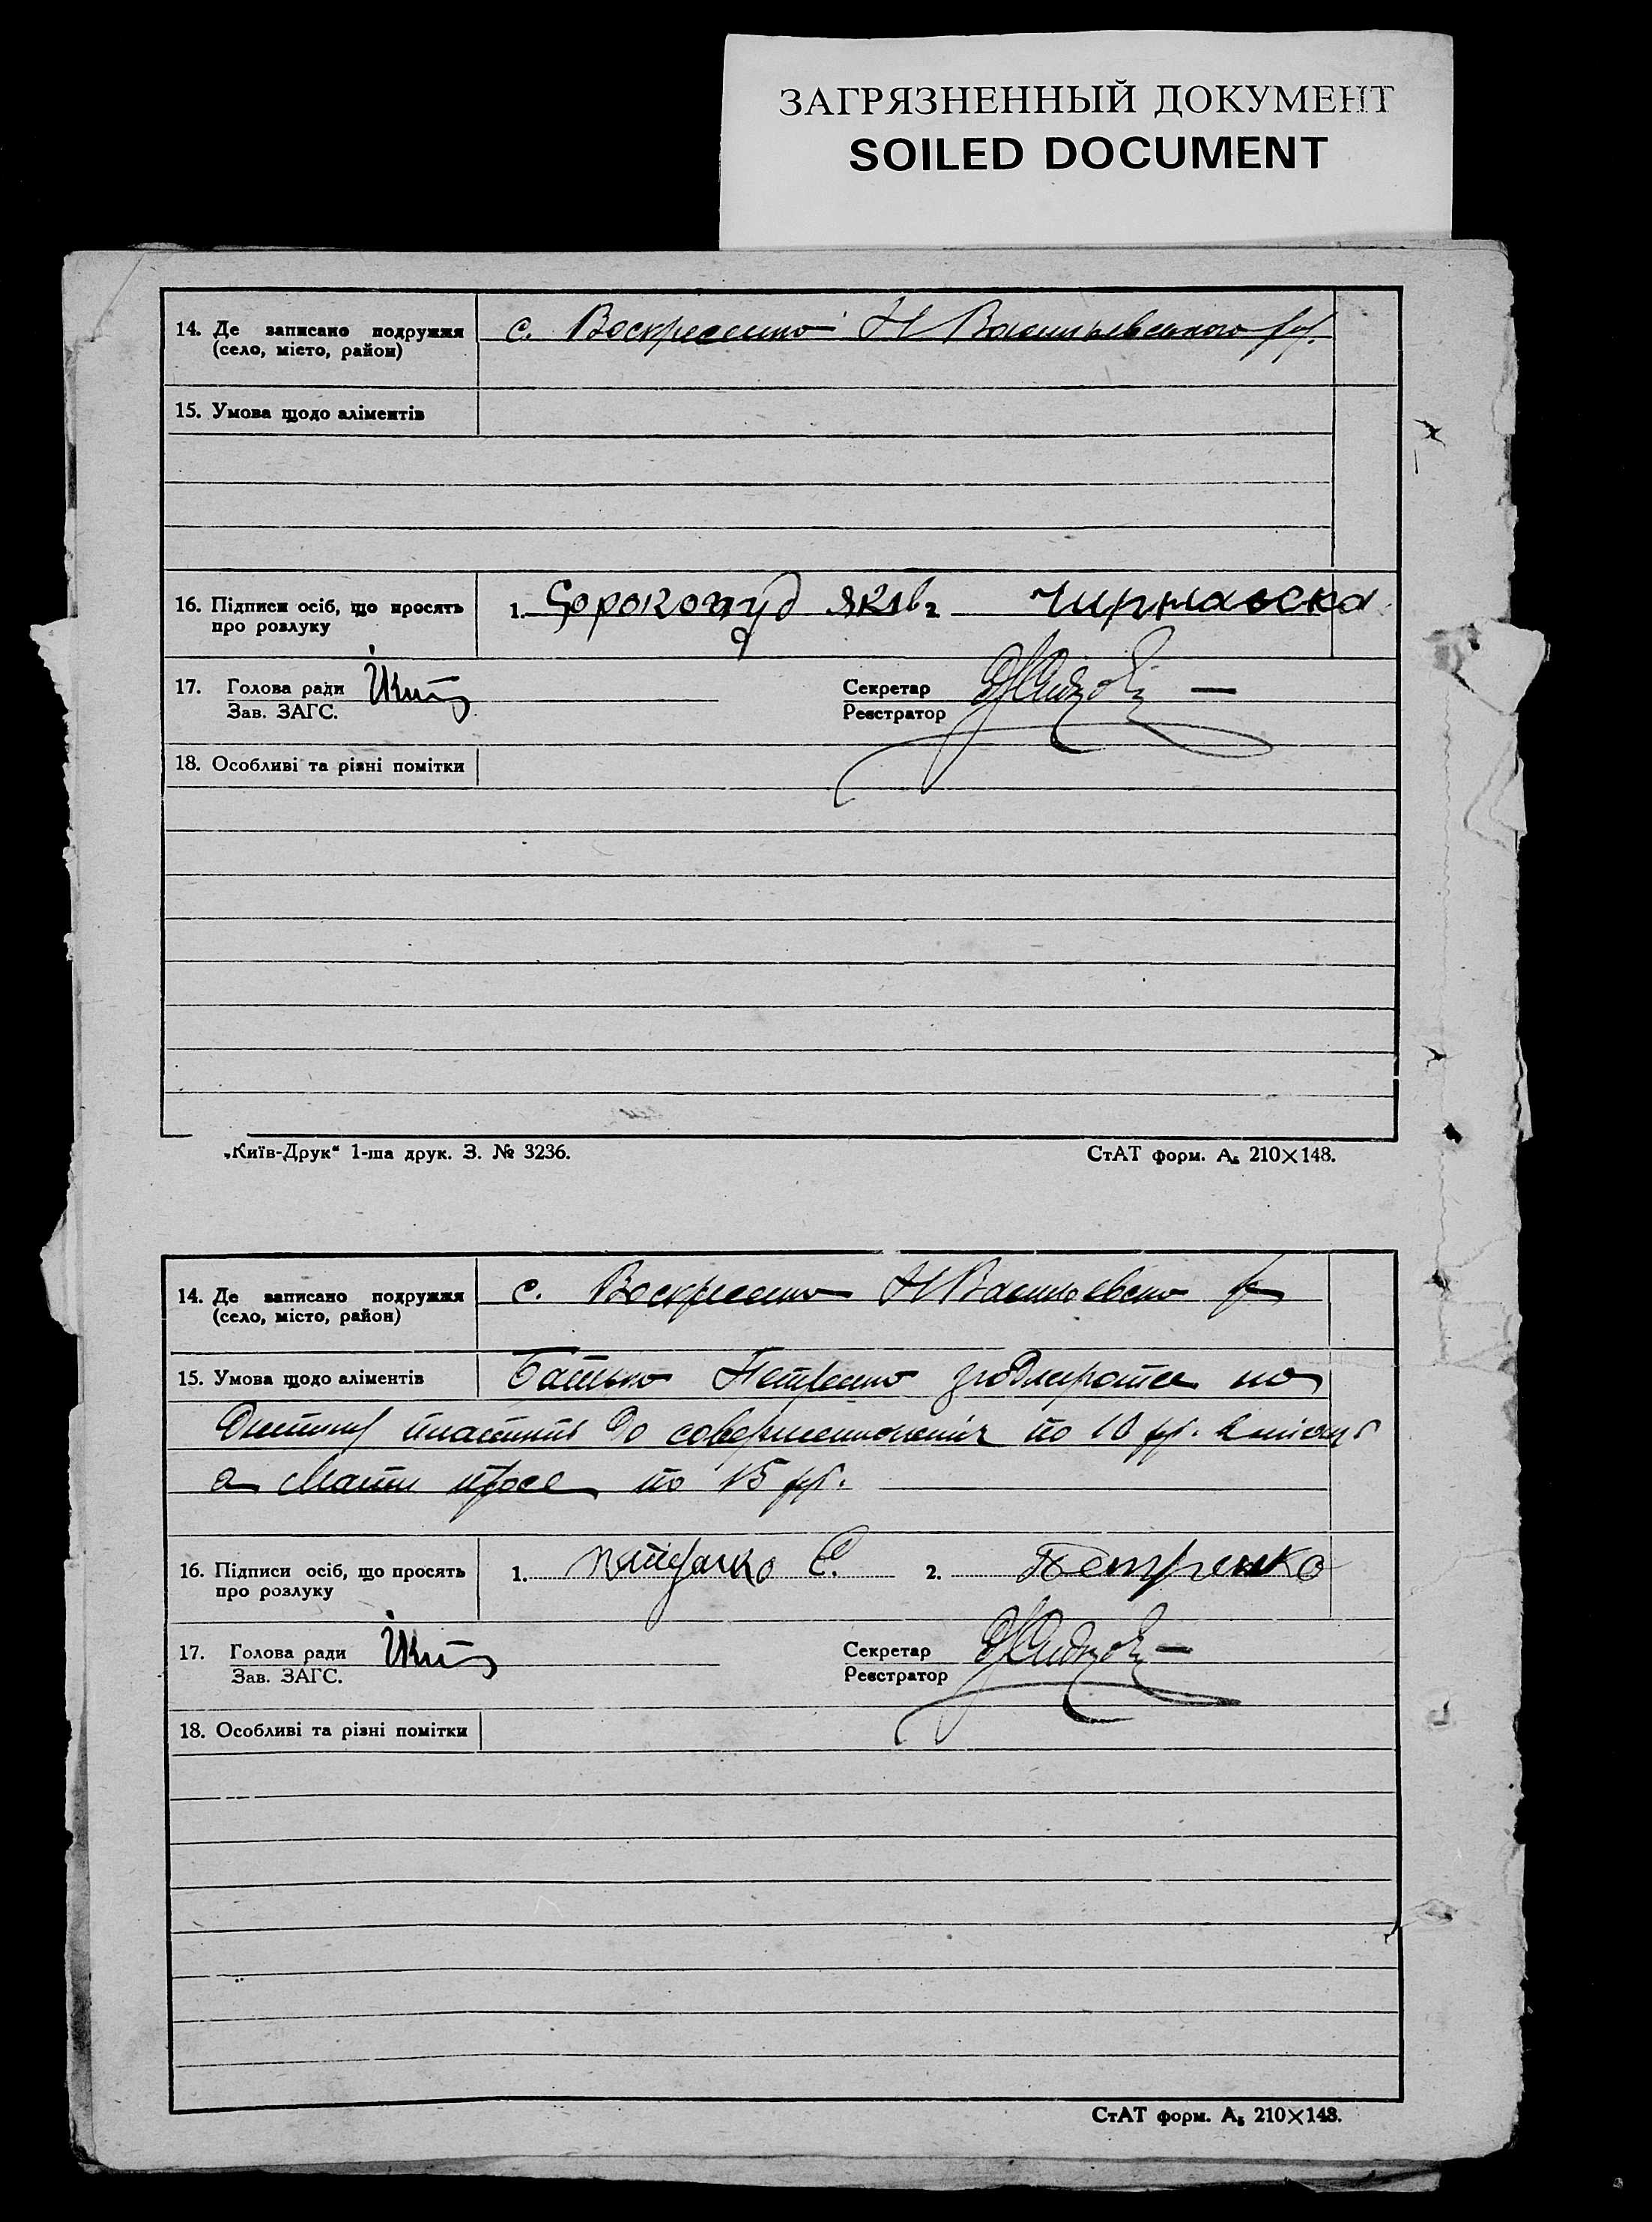 ЗАГРЯЗНЕННЫЙ ДОКУМЕНТ
SOILED DOCUMENT
14. Де записано подружжя
(село, місто, район)
с. Воскресенно
15. Умова щодо аліментів
16. Підписи осіб, що просять
про розлуку
1. Сорокопуд Яків 2.
17. Голова ради
Зав. ЗАГС.
Секретар
Реєстратор
18. Особливі та різні помітки
„Київ-Друк“ 1-ша друк. З. № 3236.
СтАТ форм. А₅ 210×148.
14. Де записано подружжя
(село, місто, район)
с. Воскресенно
15. Умова щодо аліментів
Батько Петренко на
до по 10 рб. в місяць
а Мати просе по 15 рб.
16. Підписи осіб, що просять
про розлуку
1. С. 2. Петренко
17. Голова ради
Зав. ЗАГС.
Секретар
Реєстратор
18. Особливі та різні помітки
СтАТ форм. А₅ 210×148.